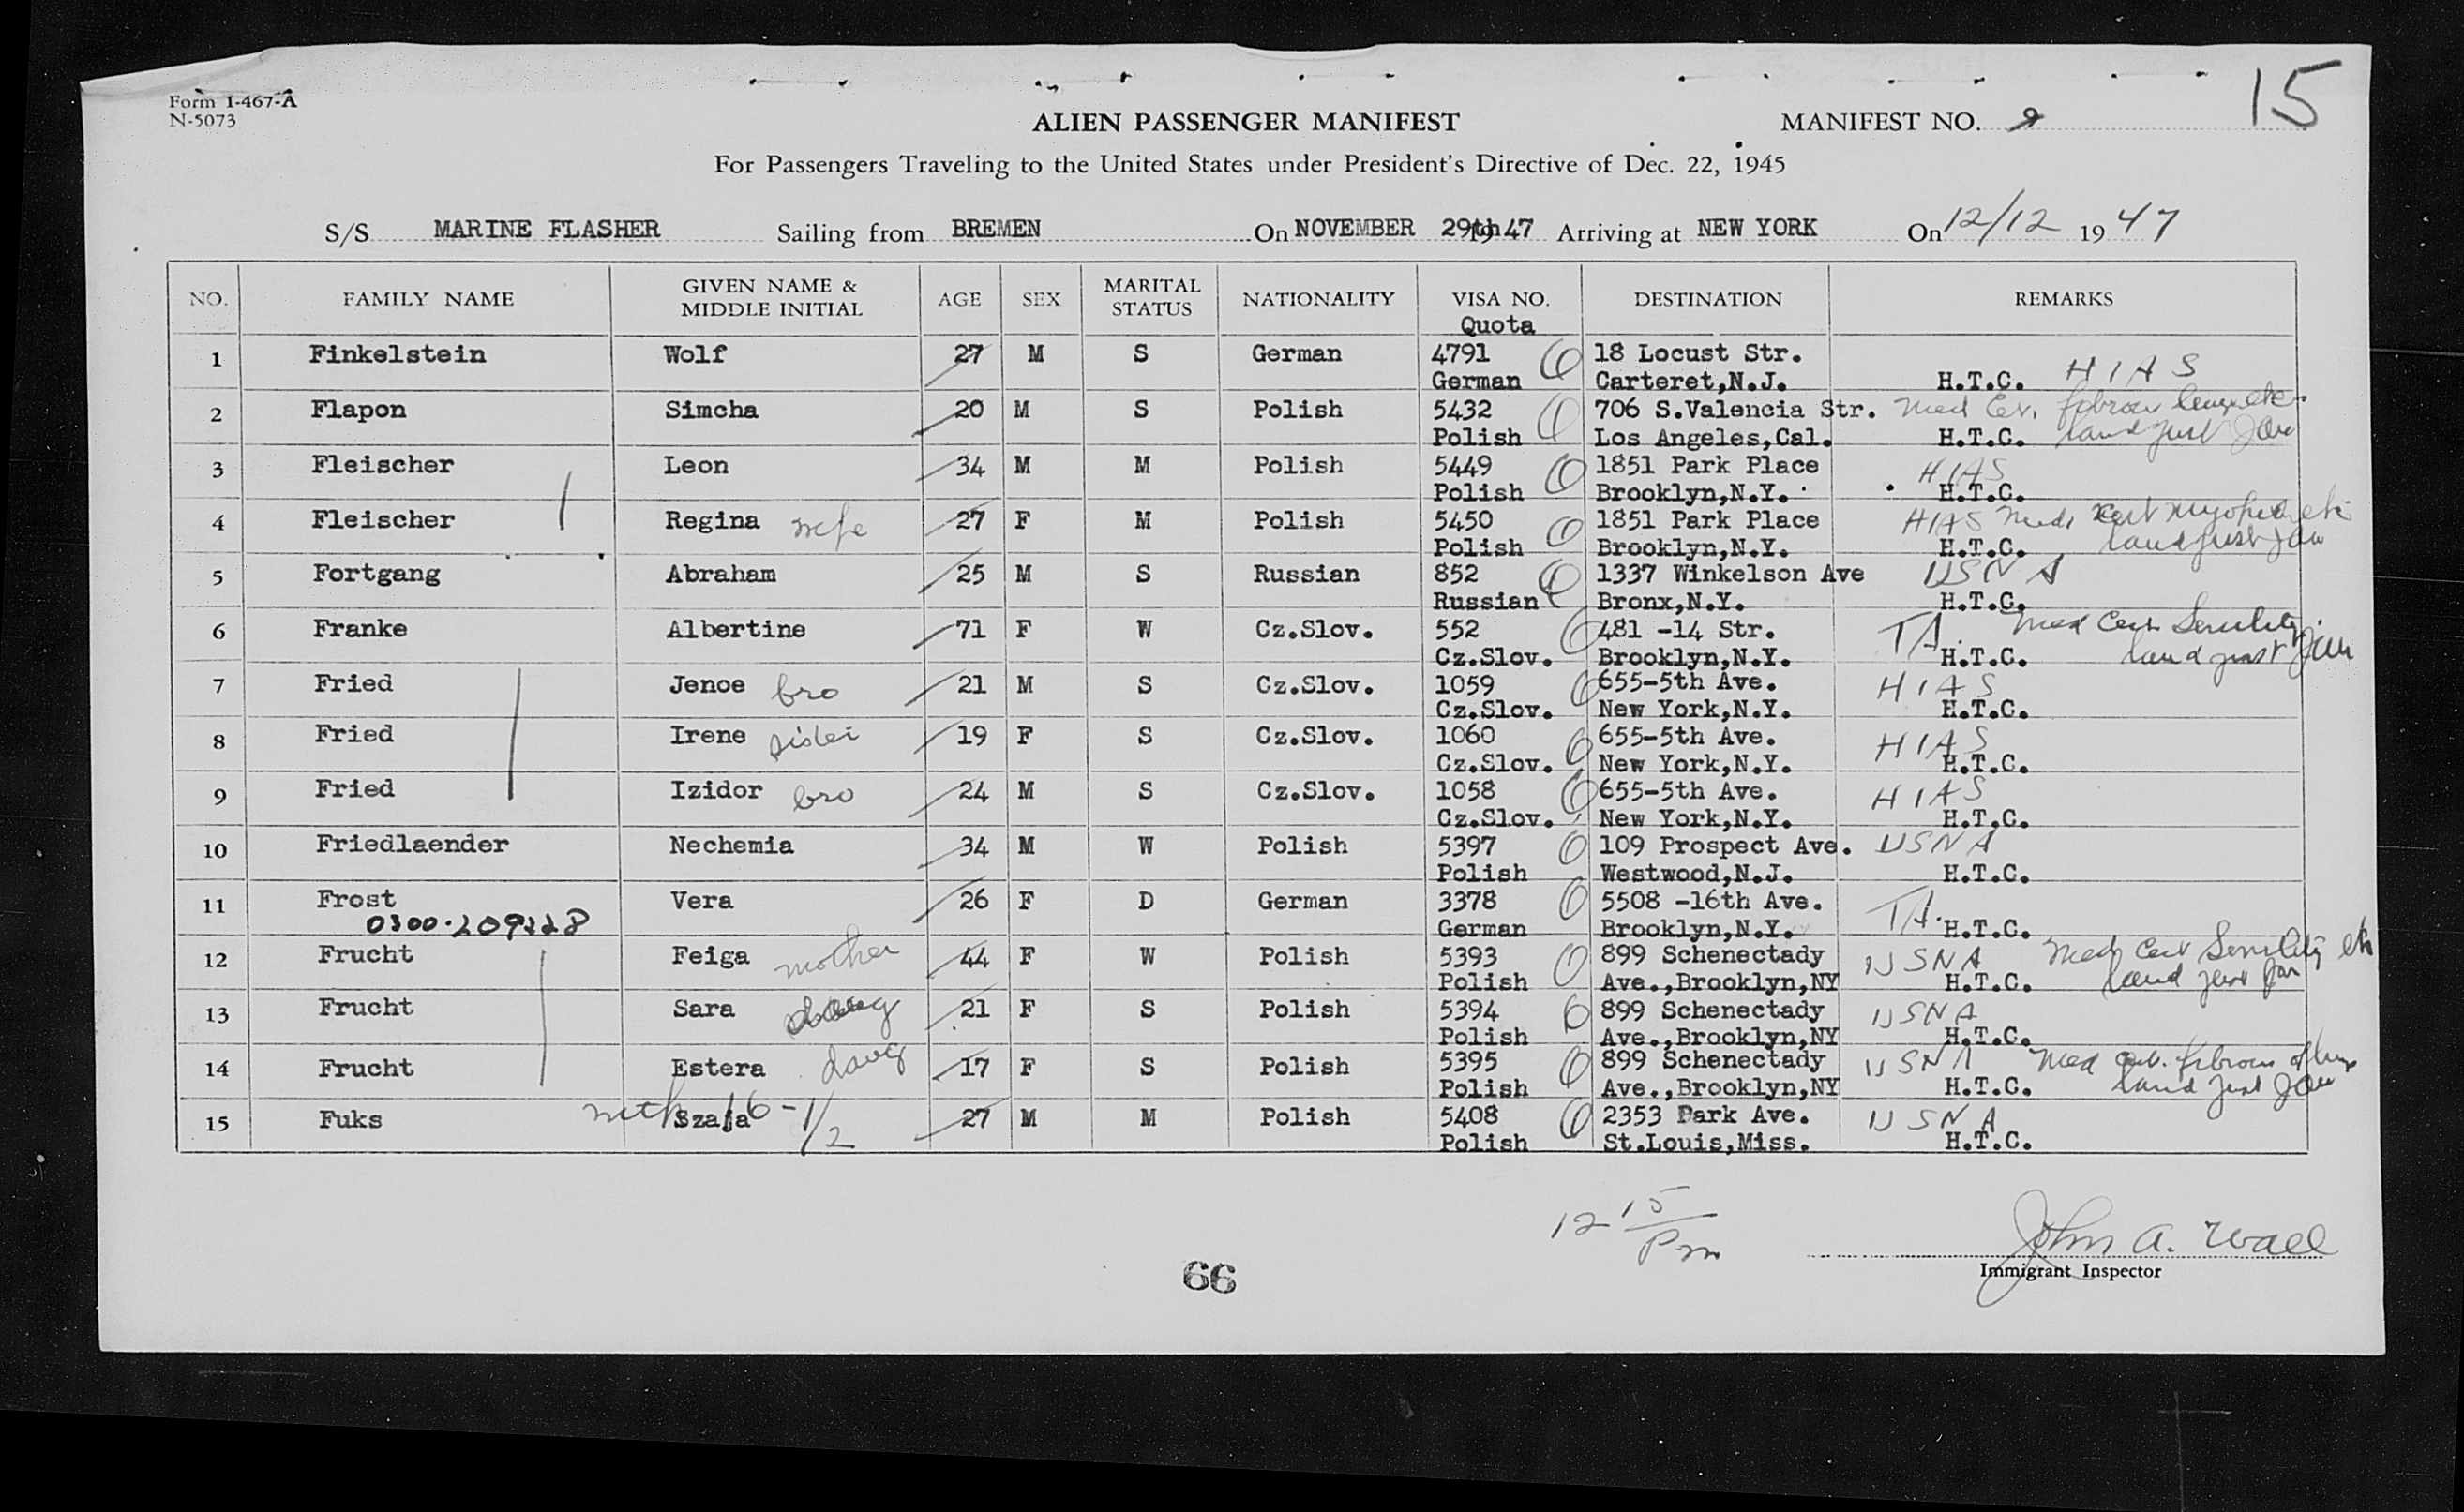 Form I-467-A
N-5073
15
ALIEN PASSENGER MANIFEST
MANIFEST NO. 9
For Passengers Traveling to the United States under President's Directive of Dec. 22, 1945
S/S MARINE FLASHER Sailing from BREMEN On NOVEMBER 29th 1947 Arriving at NEW YORK On 12/12 1947
NO. FAMILY NAME GIVEN NAME & MIDDLE INITIAL AGE SEX MARITAL STATUS NATIONALITY VISA NO. DESTINATION REMARKS
Quota
1 Finkelstein Wolf 27 M S German 4791 18 Locust Str.
German Carteret,N.J. H.T.C. HIAS
2 Flapon Simcha 20 M S Polish 5432 706 S.Valencia Str. Med
Polish Los Angeles,Cal. H.T.C. land just
3 Fleischer Leon 34 M M Polish 5449 1851 Park Place HIAS
Polish Brooklyn,N.Y. H.T.C.
4 Fleischer Regina wife 27 F M Polish 5450 1851 Park Place HIAS Med cert myopia etc
Polish Brooklyn,N.Y. H.T.C. land just
5 Fortgang Abraham 25 M S Russian 852 1337 Winkelson Ave USNA
Russian Bronx,N.Y. H.T.C.
6 Franke Albertine 71 F W Cz.Slov. 552 481 -14 Str. TA. Med Cert Senility
Cz.Slov. Brooklyn,N.Y. H.T.C. land just
7 Fried Jenoe bro 21 M S Cz.Slov. 1059 655-5th Ave. HIAS
Cz.Slov. New York,N.Y. H.T.C.
8 Fried Irene sister 19 F S Cz.Slov. 1060 655-5th Ave. HIAS
Cz.Slov. New York,N.Y. H.T.C.
9 Fried Izidor bro 24 M S Cz.Slov. 1058 655-5th Ave. HIAS
Cz.Slov. New York,N.Y. H.T.C.
10 Friedlaender Nechemia 34 M W Polish 5397 109 Prospect Ave. USNA
Polish Westwood,N.J. H.T.C.
11 Frost Vera 26 F D German 3378 5508 -16th Ave. TA.
0300-209228 German Brooklyn,N.Y. H.T.C.
12 Frucht Feiga mother 44 F W Polish 5393 899 Schenectady USNA Med Cert Senility etc
Polish Ave.,Brooklyn,NY H.T.C. land just
13 Frucht Sara 21 F S Polish 5394 899 Schenectady USNA
Polish Ave.,Brooklyn,NY H.T.C.
14 Frucht Estera daug 17 F S Polish 5395 899 Schenectady USNA Med cert. fibrosis of lung
Polish Ave.,Brooklyn,NY H.T.C. land just
15 Fuks Szaja 16-1/2 27 M M Polish 5408 2353 Park Ave. USNA
Polish St.Louis,Miss. H.T.C.
12 15 Pm
John A. Wall
Immigrant Inspector
66